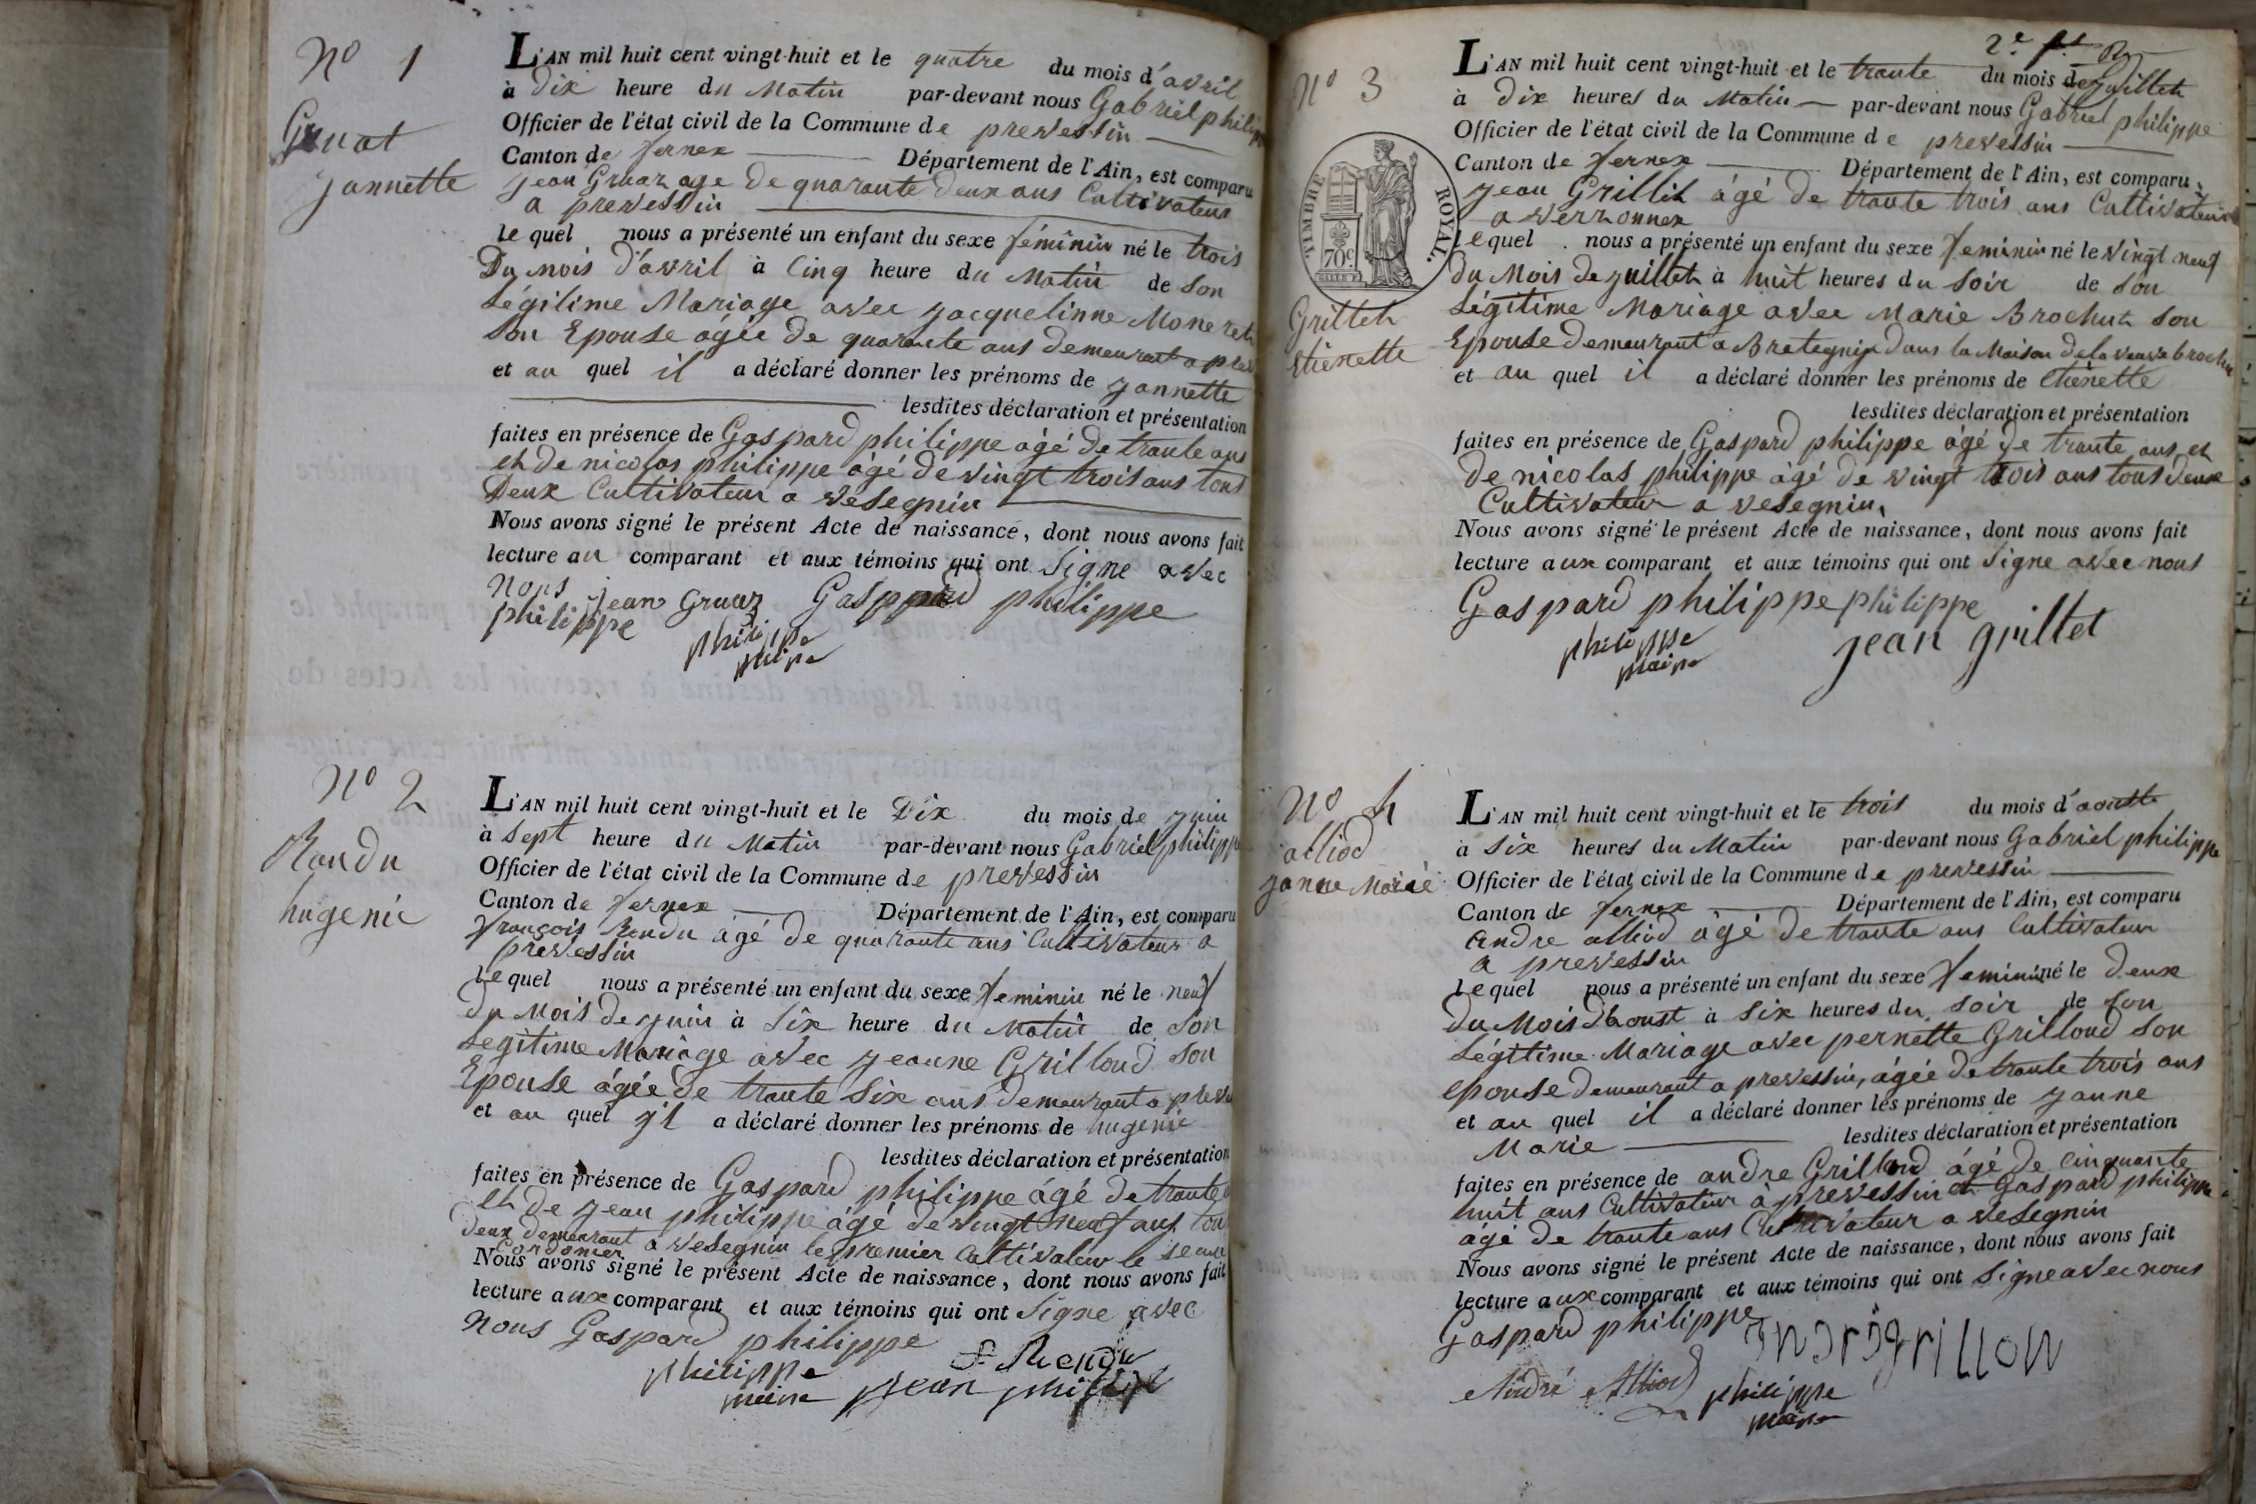 N° 1
Gruat
jannette
L'AN mil huit cent vingt-huit et le quatre du mois d'avril
à Dix heure du Matin par-devant nous Gabriel philippe
Officier de l'état civil de la Commune de prevessin
Canton de fernex Département de l'Ain, est comparu
jean Gruaz age De quarante Deux ans Cultivateur
a prevessin
lequel nous a présenté un enfant du sexe féminin né le trois
Du mois d'avril à Cinq heure du Matin de son
Légitime Mariage avec jacquelinne Moneret
son Epouse agée De quarante ans demeurant a prev
et au quel il a déclaré donner les prénoms de jannette
lesdites déclaration et présentation
faites en présence de Gaspard philippe âgé de trante ans
et De nicolas philippe âgé De vingt trois ans tous
Deux Cultivateur a vésegnin
Nous avons signé le présent Acte de naissance, dont nous avons fait
lecture au comparant et aux témoins qui ont Signe avec
Nous jean Gruaz Gasppard philippe
philippe philippe
maire
N° 2
Rondu
hugenie
L'AN mil huit cent vingt-huit et le Dix du mois de juin
à Sept heure du Matin par-devant nous Gabriel philippe
Officier de l'état civil de la Commune de prevessin
Canton de fernex Département de l'Ain, est comparu
françois Rondu âgé De quarante ans Cultivateur a
prevessin
Lequel nous a présenté un enfant du sexe feminin né le neuf
du Mois De juin à Six heure du Matin de Son
Legitime Mariage avec jeanne Grilloud son
Epouse âgée De trante Six ans Demeurant a preve
et au quel yl a déclaré donner les prénoms de hugenie
lesdites déclaration et présentation
faites en présence de Gaspard philippe âgé De trante
et De jean philippe âgé De vingt neuf ans tou
Deux Demeurant a vesegnin le premier Cultivateur le
Cordonier
Nous avons signé le présent Acte de naissance, dont nous avons fait
lecture aux comparant et aux témoins qui ont Signe avec
Nous Gaspard philippe
philippe
maire jean philippe
2e
N° 3
TIMBRE ROYAL.
70c
Grilleh
etienette
L'AN mil huit cent vingt-huit et le trante du mois de juilleh
à Dix heures du Matin par-devant nous Gabriel philippe
Officier de l'état civil de la Commune de prevessin
Canton de fernex Département de l'Ain, est comparu
jean Grilleh âgé De trante trois ans Cultivateur
a verzonnex
Lequel nous a présenté un enfant du sexe feminin né le vingt neuf
du Mois De juilleh à huit heures du soir de son
Légitime Mariage avec Marie Brochuh Son
Epouse Demeurant a Bretegnix Dans la Maison De la veuve brochu
et au quel il a déclaré donner les prénoms de etienette
lesdites déclaration et présentation
faites en présence de Gaspard philippe âgé De trante ans et
De nicolas philippe âgé De vingt trois ans tous Deux
Cultivateur a vesegnin
Nous avons signé le présent Acte de naissance, dont nous avons fait
lecture aux comparant et aux témoins qui ont Signe avec nous
Gaspard philippe philippe
philippe jean grillet
maire
N° 4
alliod
janne Marie
L'AN mil huit cent vingt-huit et le trois du mois d'aoustte
à Six heures du Matin par-devant nous Gabriel philippe
Officier de l'état civil de la Commune de prevessin
Canton de fernex Département de l'Ain, est comparu
andre alliod âgé De trante ans Cultivateur
a prevessin
Lequel nous a présenté un enfant du sexe feminin né le Deux
Du Mois D'houst à Six heures du Soir de son
Légitime Mariage avec pernette Grilloud Son
epouse Demeurant a prevessin, âgée De trante trois ans
et au quel il a déclaré donner les prénoms de janne
Marie lesdites déclaration et présentation
faites en présence de andre Grilloud âgé De Cinquante
huit ans Cultivateur a prevessin et Gaspard philippe
âgé De trante ans Cultivateur a vesegnin
Nous avons signé le présent Acte de naissance, dont nous avons fait
lecture aux comparant et aux témoins qui ont Signe avec nous
Gaspard philippe andrégrillow
André Alliod philippe
maire